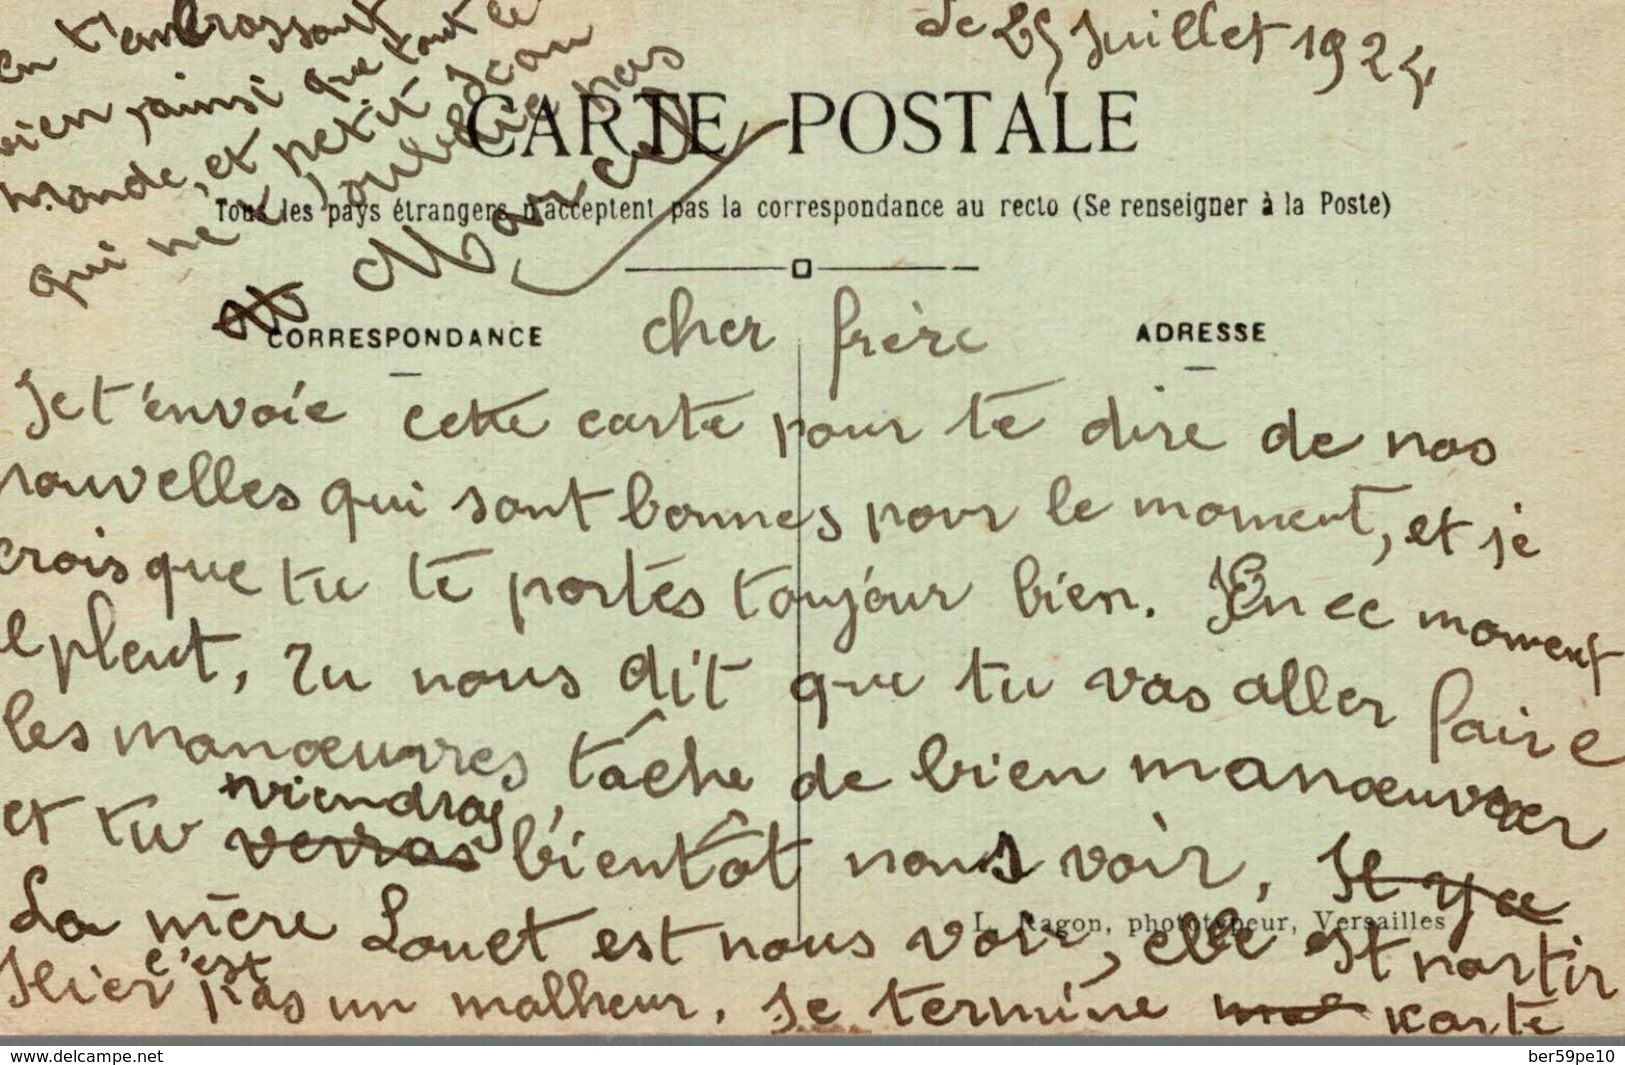 Le 25 Juillet 1924,
CARTE POSTALE
Tous les pays étrangers n'acceptent pas la correspondance au recto (Se renseigner à la Poste)
CORRESPONDANCE
ADRESSE
cher frère
Je t'envoie cette carte pour te dire de nos
nouvelles qui sont bonnes pour le moment, et je
crois que tu te portes toujour bien. En ce moment
il pleut, Tu nous dit que tu vas aller faire
les manœuvres, tâche de bien manœuvrer
et tu verras viendras bientôt nous voir, Il y a
La mère Louet est nous voir, elle est partir
Hier c'est pas un malheur. Je termine ma karte
en t'embrassant
bien, ainsi que tout le
monde, et petit Jean
qui ne t'oublie pas
Marcel
L. Ragon, phototypeur, Versailles
www.delcampe.net
ber59pe10